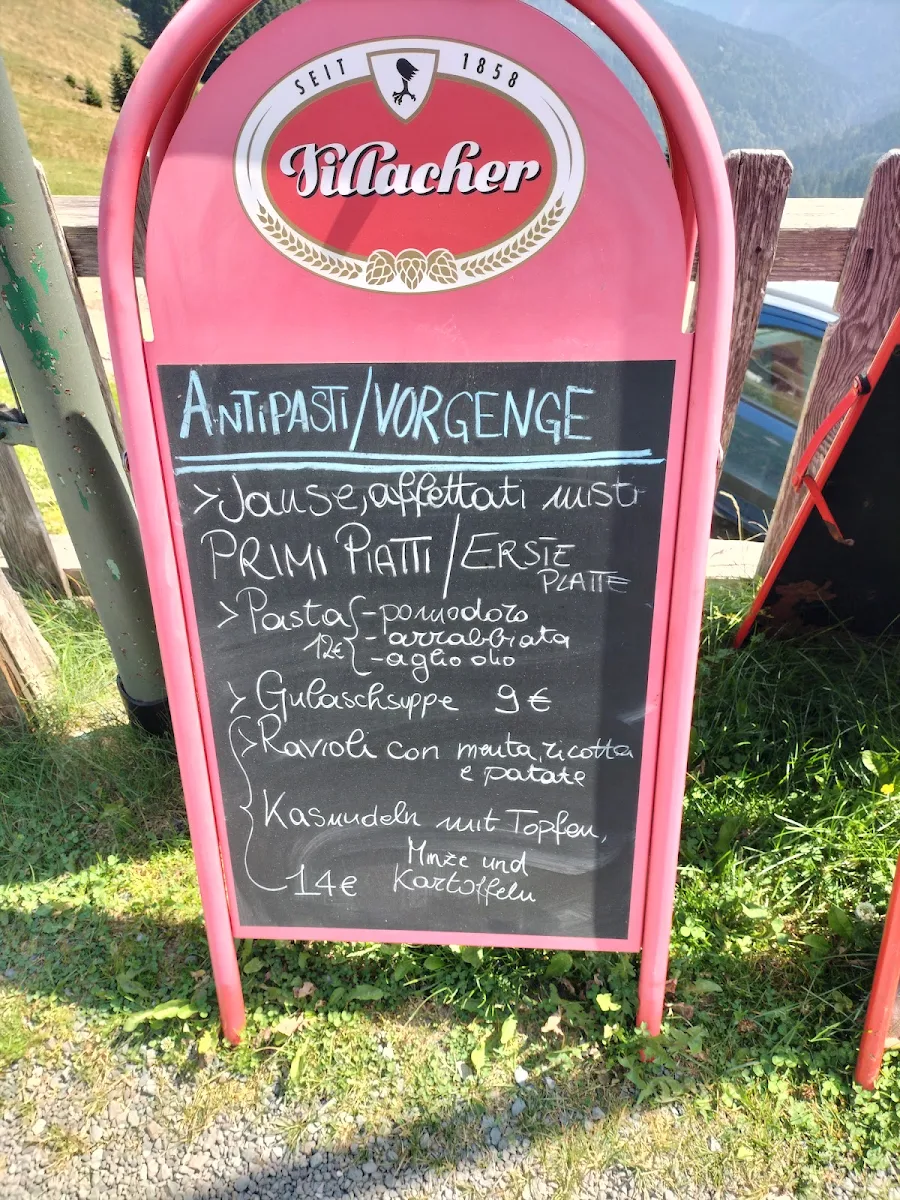 SEIT 1858
Villacher
ANTIPASTI/VORGENGE
>Jause, affettati misti
PRIMI PIATTI/ERSTE
PLATTE
>Pasta{-pomodoro
12€ -arrabbiata
-aglio olio
>Gulaschsuppe 9€
>Ravioli con menta, ricotta
e patate
Kasnudeln mit Topfen,
Minze und
14€ Kartoffeln